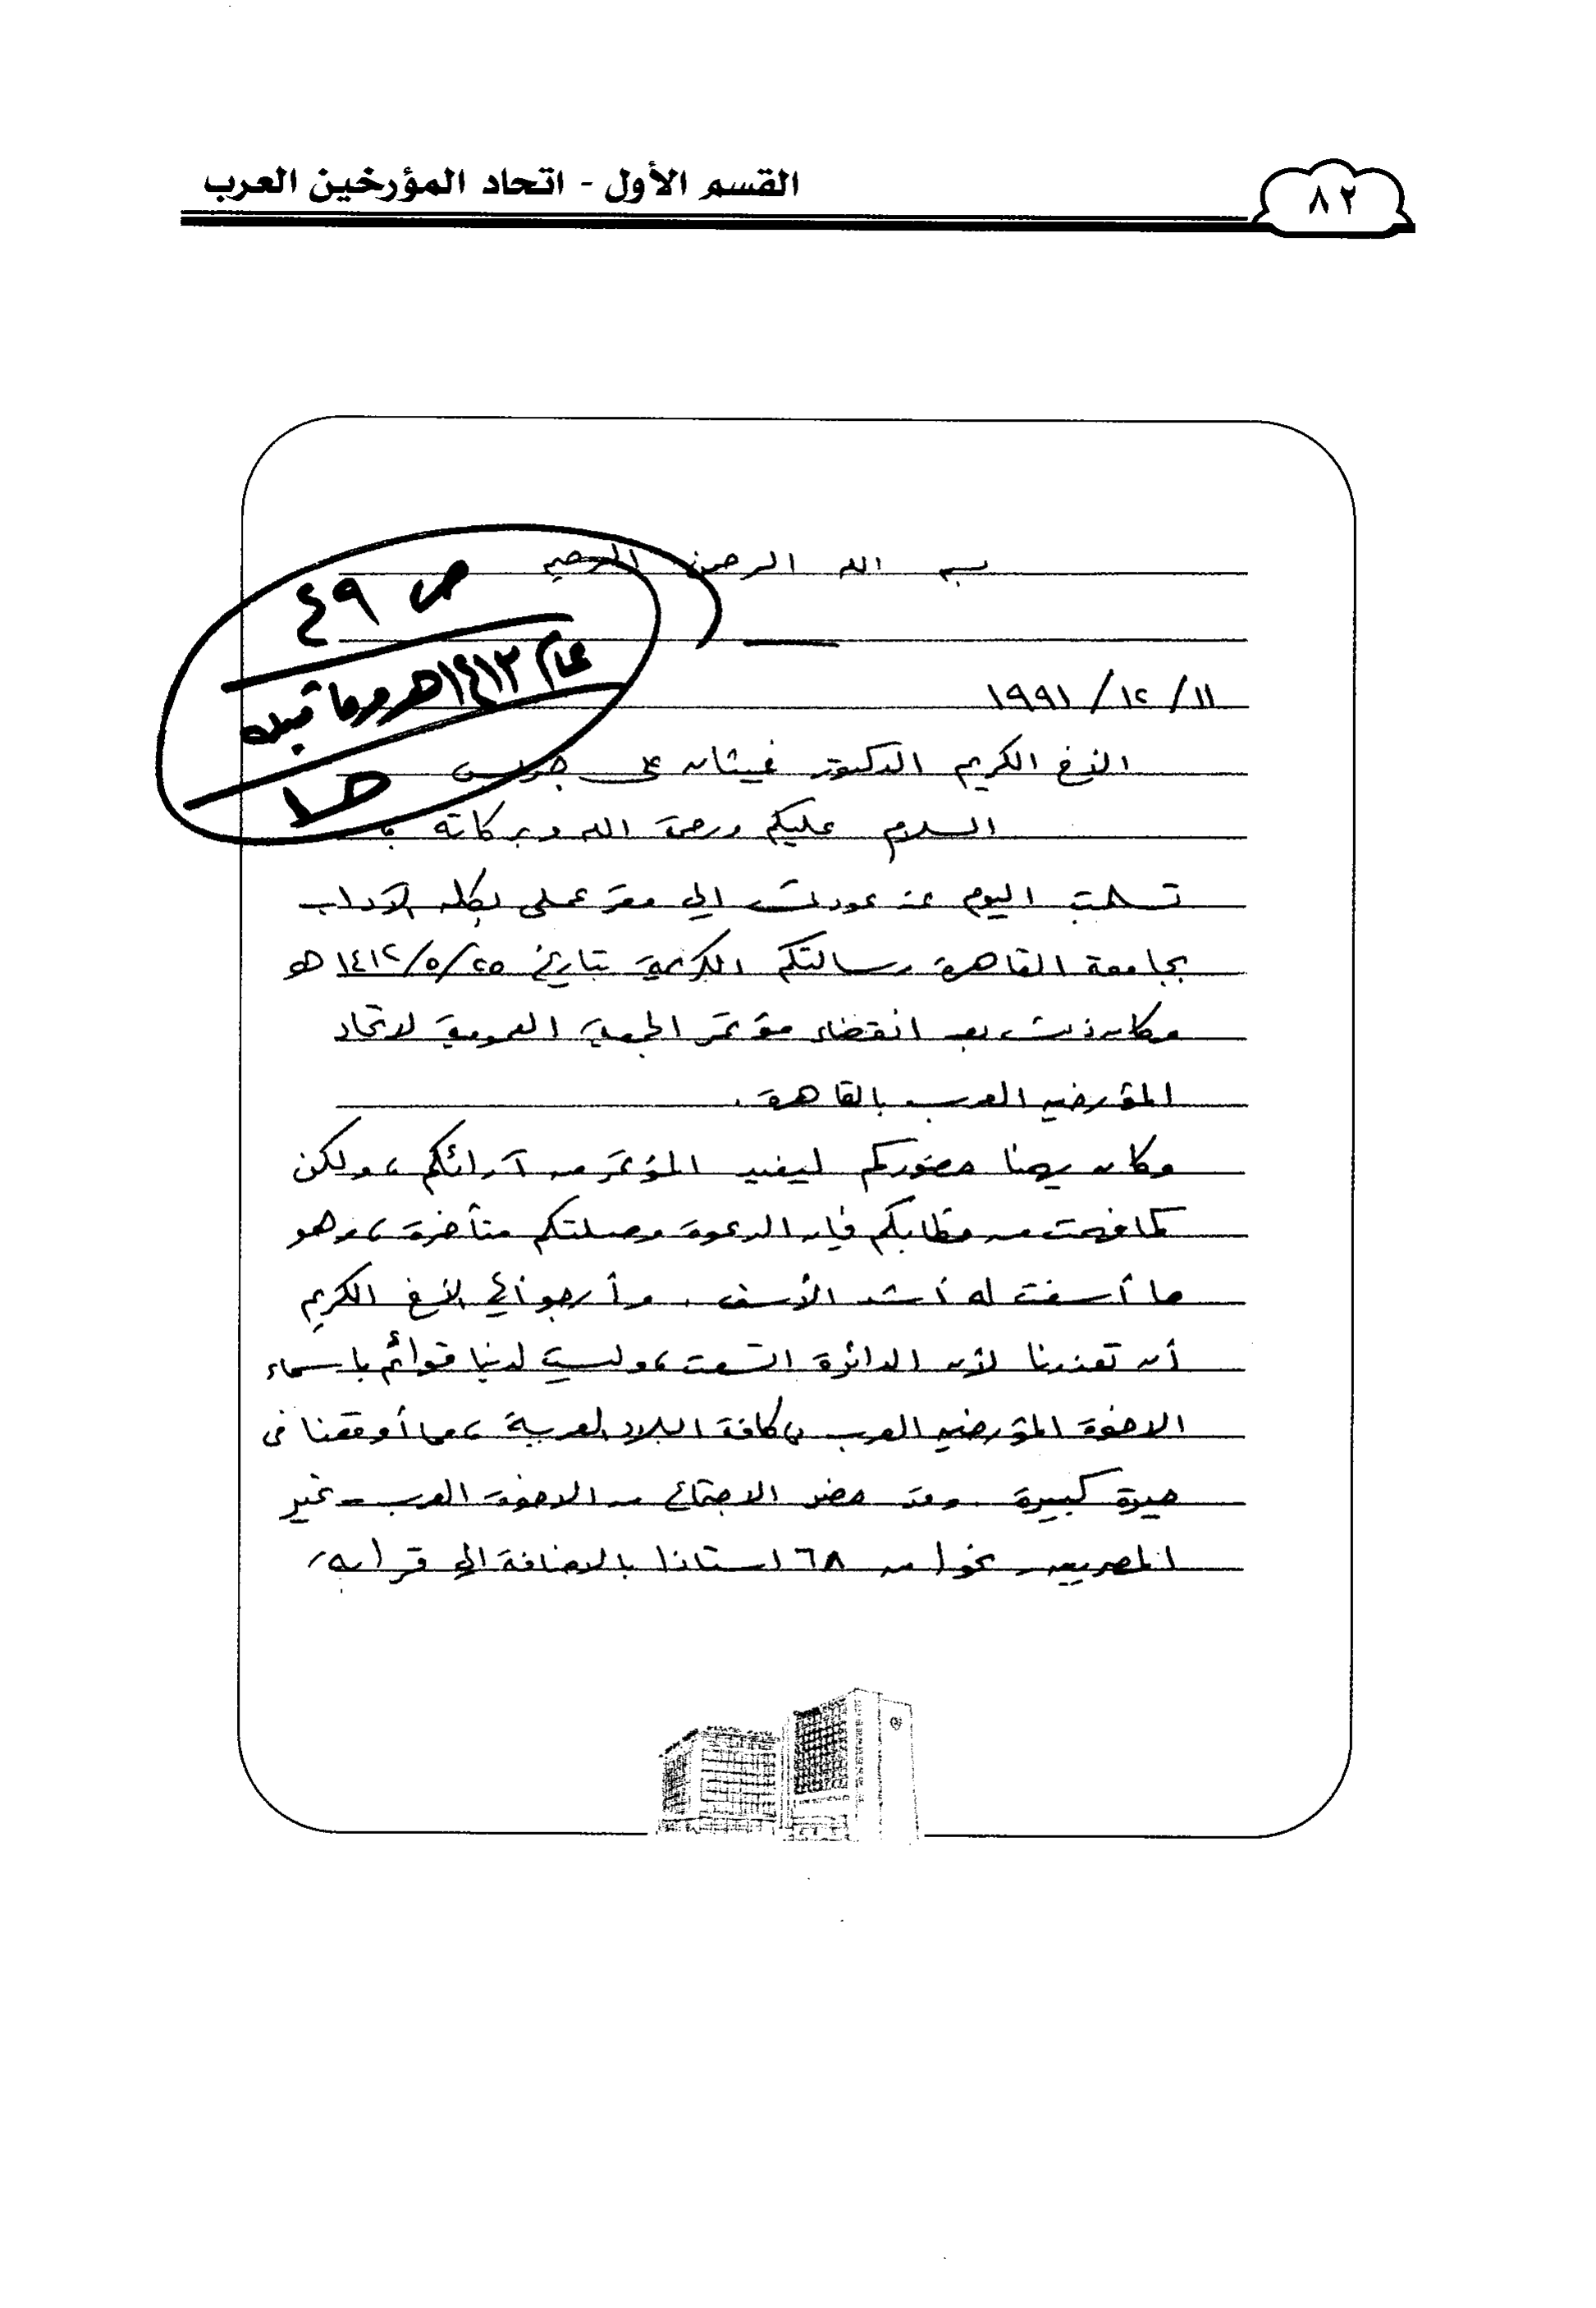 ٨٢
القسم الأول - اتحاد المؤرخين العرب
بسم الله الرحمن الرحيم
ص ٤٩
عام ١٤١٢هـ وما قبله
١١/ ١٢/ ١٩٩١
الأخ الكريم الدكتور غيثان على جريس
السلام عليكم ورحمة الله وبركاته ،
تسلمت اليوم عند عودتى الى مقر عملى بكلية الآداب
بجامعة القاهرة رسالتكم الكريمة بتاريخ ٢٥/ ٥/ ١٤١٢ هـ
وكان ذلك بعد انقضاء مؤتمر الجمعية العمومية لاتحاد
المؤرخين العرب بالقاهرة .
وكان يهمنا حضوركم ليفيد المؤتمر من آرائكم ، ولكن
كما فهمت من خطابكم فإن الدعوة وصلتكم متأخرة ، وهو
ما أسفت له أشد الأسف . وأرجو أخي الأخ الكريم
أن تعذرنا لأن الدائرة اتسعت ، وليست لدينا قوائم باسماء
الاخوة المؤرخين العرب فى كافة البلاد العربية ، مما أوقعنا فى
حيرة كبيرة . وقد حضر الاجتماع من الاخوة العرب - غير
المصريين - نحوا من ٦٨ استاذا بالاضافة الى